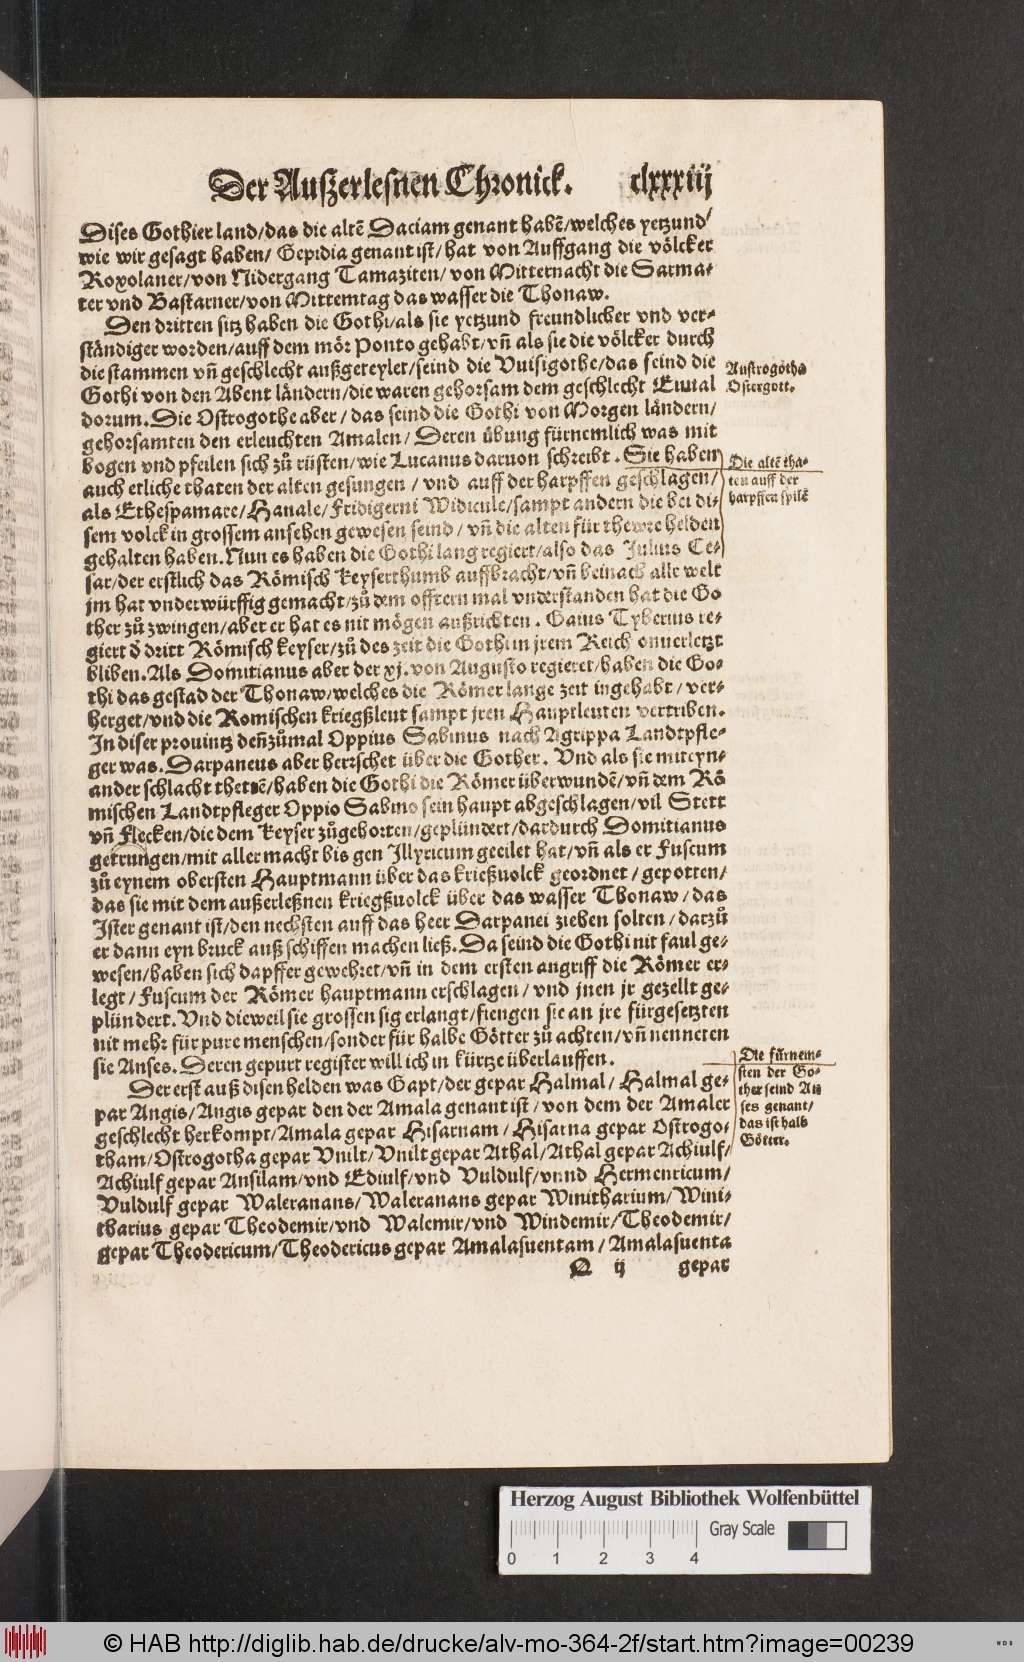 Der Außerlesnen Chronick. clxxxiij
Dises Gothier land/das die altẽ Daciam genant habẽ/welches yetzund/
wie wir gesagt haben/ Gepidia genant ist/ hat von Auffgang die völcker
Roxolaner/von Nidergang Tamaziten/ von Mitternacht die Sarma-
ter vnd Bastarner/von Mittemtag das wasser die Thonaw.
Den dritten sitz haben die Gothi/als sie yetzund freundlicher vnd ver-
ständiger worden/auff dem mör Ponto gehabt/vñ als sie die völcker durch
die stammen vñ geschlecht außgeteylet/seind die Vuisigothe/das seind die
Gothi von den Abent ländern/die waren gehorsam dem geschlecht
dorum. Die Ostrogothe aber/ das seind die Gothi von Morgen ländern/
gehorsamten den erleuchten Amalen/ Deren übung fürnemlich was mit
bogen vnd pfeilen sich zů rüsten/wie Lucanus daruon schreibt. Sie haben
auch etliche thaten der alten gesungen / vnd auff der harpffen geschlagen/
als Ethespamare/Hanale/Fridigerni Widicule/sampt andern die bei di-
sem volck in grossem ansehen gewesen seind/ vñ die alten für thewre helden
gehalten haben. Nun es haben die Gothi lang regiert/also das Julius Ce-
sar/der erstlich das Römisch keyserthumb auffbracht/vñ beinach alle welt
jm hat vnderwürffig gemacht/zů dem offtern mal vnderstanden hat die Go
ther zů zwingen/aber er hat es nit mögen außrichten. Gaius Tyberius re-
giert d̕ dritt Römisch keyser/zů des zeit die Gothi in jrem Reich onuerletzt
bliben. Als Domitianus aber der xj. von Augusto regieret/haben die Go-
thi das gestad der Thonaw/welches die Römer lange zeit ingehabt/ ver-
herget/vnd die Romischen kriegßleut sampt jren Hauptleuten vertriben.
In diser prouintz deñzůmal Oppius Sabinus nach Agrippa Landtpfle-
ger was. Darpaneus aber herrschet über die Gother. Vnd als sie miteyn-
ander schlacht thetnẽ/haben die Gothi die Römer überwundẽ/vñ dem Rö
mischen Landtpfleger Oppio Sabino sein haupt abgeschlagen/vil Stett
vñ flecken/die dem keyser zůgehorten/geplündert/dardurch Domitianus
getrungen/mit aller macht bis gen Illyricum geeilet hat/vñ als er Fuscum
zů eynem obersten Hauptmann über das krießuolck geordnet/gepotten/
das sie mit dem außerleßnen kriegßuolck über das wasser Thonaw/das
Ister genant ist/den nechsten auff das heer Darpanei ziehen solten/darzů
er dann eyn bruck auß schiffen machen ließ. Da seind die Gothi nit faul ge-
wesen/haben sich dapffer gewehret/vñ in dem ersten angriff die Römer er-
legt/Fuscum der Römer hauptmann erschlagen/ vnd jnen jr gezellt ge-
plündert. Vnd dieweil sie grossen sig erlangt/fiengen sie an jre fürgesetzten
nit mehr für pure menschen/sonder für halbe Götter zů achten/vñ nenneten
sie Anses. Deren gepurt register will ich in kürtze überlauffen.
Der erst auß disen helden was Gapt/der gepar Halmal/ Halmal ge-
par Augis/Augis gepar den der Amala genant ist/von dem der Amaler
geschlecht herkompt/Amala gepar Hisarnam/ Hisarna gepar Ostrogo-
tham/Ostrogotha gepar Vnilt/Vnilt gepar Athal/Athal gepar Achiulf/
Achiulf gepar Ansilam/vnd Ediulf/vnd Vuldulf/vnnd Hermenricum/
Vuldulf gepar Waleranans/Waleranans gepar Winitharium/Wini-
tharius gepar Theodemir/vnd Walemir/vnd Windemir/Theodemir/
gepar Theodericum/Theodericus gepar Amalasuentam/Amalasuenta
Q ij gepar
Austrogotha
Ostergott.
Die altẽ tha-
ten auff der
harpffen spilẽ
Die fürnem-
sten der Go-
ther seind An
ses genant/
das ist halb
Götter.
Herzog August Bibliothek Wolfenbüttel
Gray Scale
0 1 2 3 4
© HAB http://diglib.hab.de/drucke/alv-mo-364-2f/start.htm?image=00239